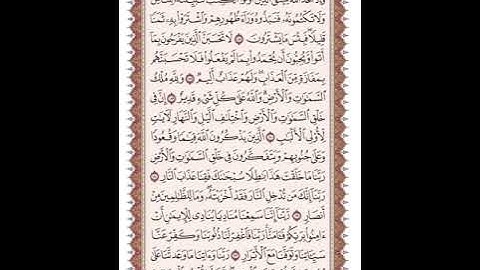 وَلَا تَكْتُمُونَهُۥ فَنَبَذُوهُ وَرَآءَ ظُهُورِهِمْ وَٱشْتَرَوْا۟ بِهِۦ ثَمَنًا
قَلِيلًا فَبِئْسَ مَا يَشْتَرُونَ ۝ لَا تَحْسَبَنَّ ٱلَّذِينَ يَفْرَحُونَ بِمَآ
أَتَوا۟ وَّيُحِبُّونَ أَن يُحْمَدُوا۟ بِمَا لَمْ يَفْعَلُوا۟ فَلَا تَحْسَبَنَّهُم
بِمَفَازَةٍ مِّنَ ٱلْعَذَابِ وَلَهُمْ عَذَابٌ أَلِيمٌ ۝ وَلِلَّهِ مُلْكُ
ٱلسَّمَٰوَٰتِ وَٱلْأَرْضِ وَٱللَّهُ عَلَىٰ كُلِّ شَىْءٍ قَدِيرٌ ۝ إِنَّ فِى
خَلْقِ ٱلسَّمَٰوَٰتِ وَٱلْأَرْضِ وَٱخْتِلَٰفِ ٱلَّيْلِ وَٱلنَّهَارِ لَءَايَٰتٍ
لِّأُو۟لِى ٱلْأَلْبَٰبِ ۝ ٱلَّذِينَ يَذْكُرُونَ ٱللَّهَ قِيَٰمًا وَقُعُودًا
وَعَلَىٰ جُنُوبِهِمْ وَيَتَفَكَّرُونَ فِى خَلْقِ ٱلسَّمَٰوَٰتِ وَٱلْأَرْضِ
رَبَّنَا مَا خَلَقْتَ هَٰذَا بَٰطِلًا سُبْحَٰنَكَ فَقِنَا عَذَابَ ٱلنَّارِ ۝
رَبَّنَآ إِنَّكَ مَن تُدْخِلِ ٱلنَّارَ فَقَدْ أَخْزَيْتَهُۥ وَمَا لِلظَّٰلِمِينَ مِنْ
أَنصَارٍ ۝ رَّبَّنَآ إِنَّنَا سَمِعْنَا مُنَادِيًا يُنَادِى لِلْإِيمَٰنِ أَنْ
ءَامِنُوا۟ بِرَبِّكُمْ فَـَٔامَنَّا رَبَّنَا فَٱغْفِرْ لَنَا ذُنُوبَنَا وَكَفِّرْ عَنَّا
سَيِّـَٔاتِنَا وَتَوَفَّنَا مَعَ ٱلْأَبْرَارِ ۝ رَبَّنَا وَءَاتِنَا مَا وَعَدتَّنَا عَلَىٰ